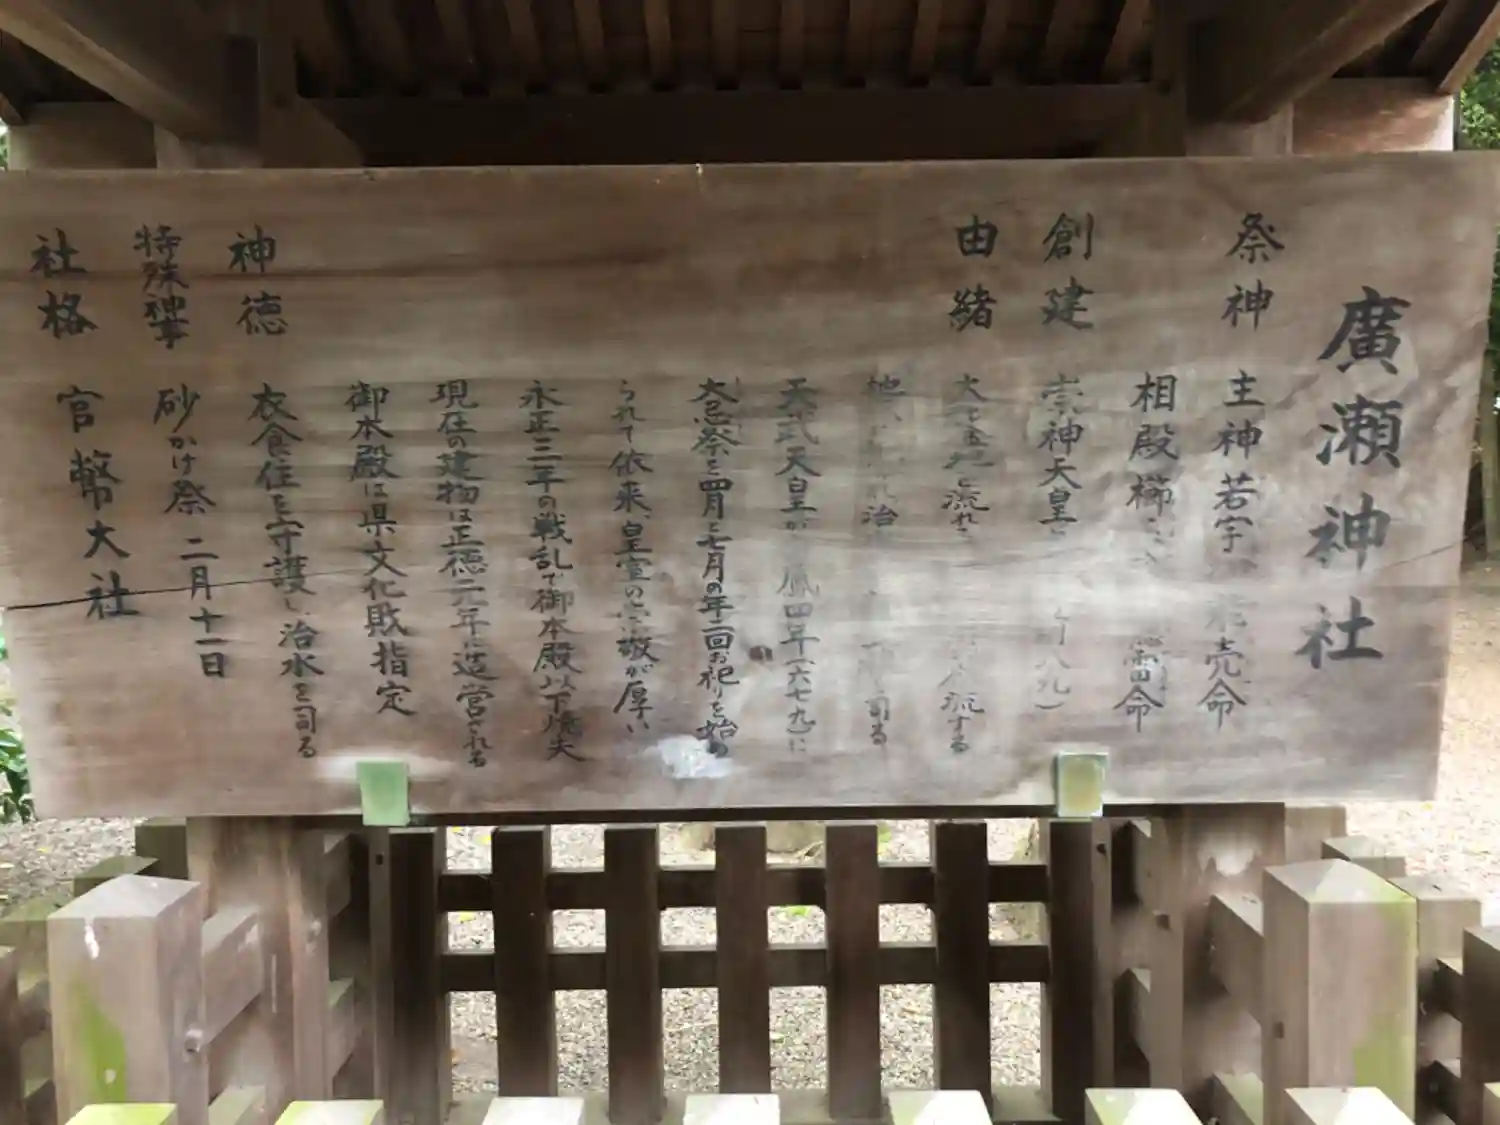 廣瀬神社
祭神 主神若宇 売命
相殿櫛 命
創建 崇神天皇 八九)
由緒 大 流れ 流する
治 司る
天武天皇が 鳳四年(六七九)に
大忌祭を四月と七月の年二回お祀りを始め
られて依来、皇室の 敬が厚い
永正三年の戦乱で御本殿以下焼失
現在の建物は正徳元年に造営される
御本殿は県文化財指定
神徳 衣食住を守護し、治水を司る
特殊神事 砂かけ祭 二月十一日
社格 官幣大社